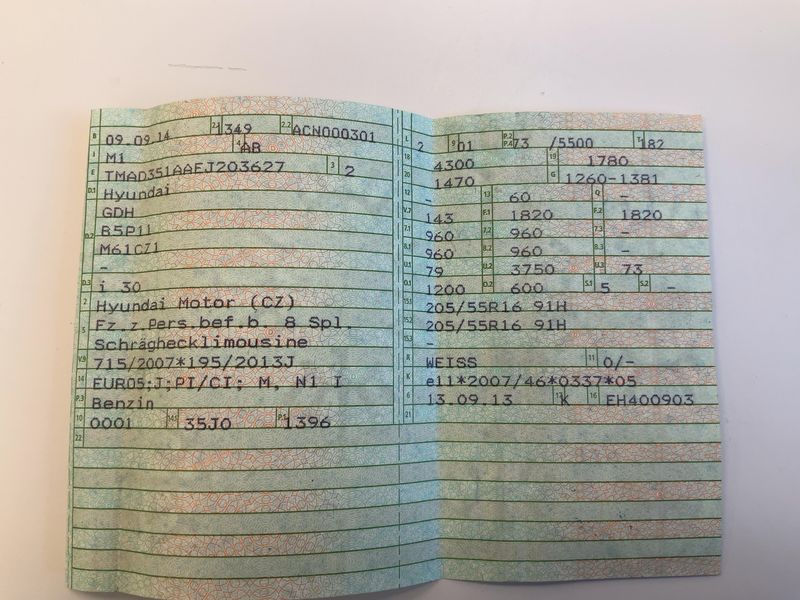 B 09.09.14 2.1 1349 2.2 ACN000301
J M1 4 AR
E TMAD351AAEJ203627 3 2
D.1 Hyundai
GDH
D.2 B5P11
M61CZ1
-
D.3 i 30
2 Hyundai Motor (CZ)
5 Fz.z.Pers.bef.b. 8 Spl.
Schräghecklimousine
V.9 715/2007*195/2013J
14 EURO5;J;PI/CI; M, N1 I
P.3 Benzin
10 0001 14.1 35J0 P.1 1396
22
L 2 9 01 P.2 P.4 73 /5500 T 182
18 4300 19 1780
20 1470 G 1260-1381
12 - 13 60 Q -
V.7 143 F.1 1820 F.2 1820
7.1 960 7.2 960 7.3 -
8.1 960 8.2 960 8.3 -
U.1 79 U.2 3750 U.3 73
O.1 1200 O.2 600 S.1 5 S.2 -
15.1 205/55R16 91H
15.2 205/55R16 91H
15.3 -
R WEISS 11 0/-
K e11*2007/46*0337*05
6 13.09.13 17 K 16 EH400903
21